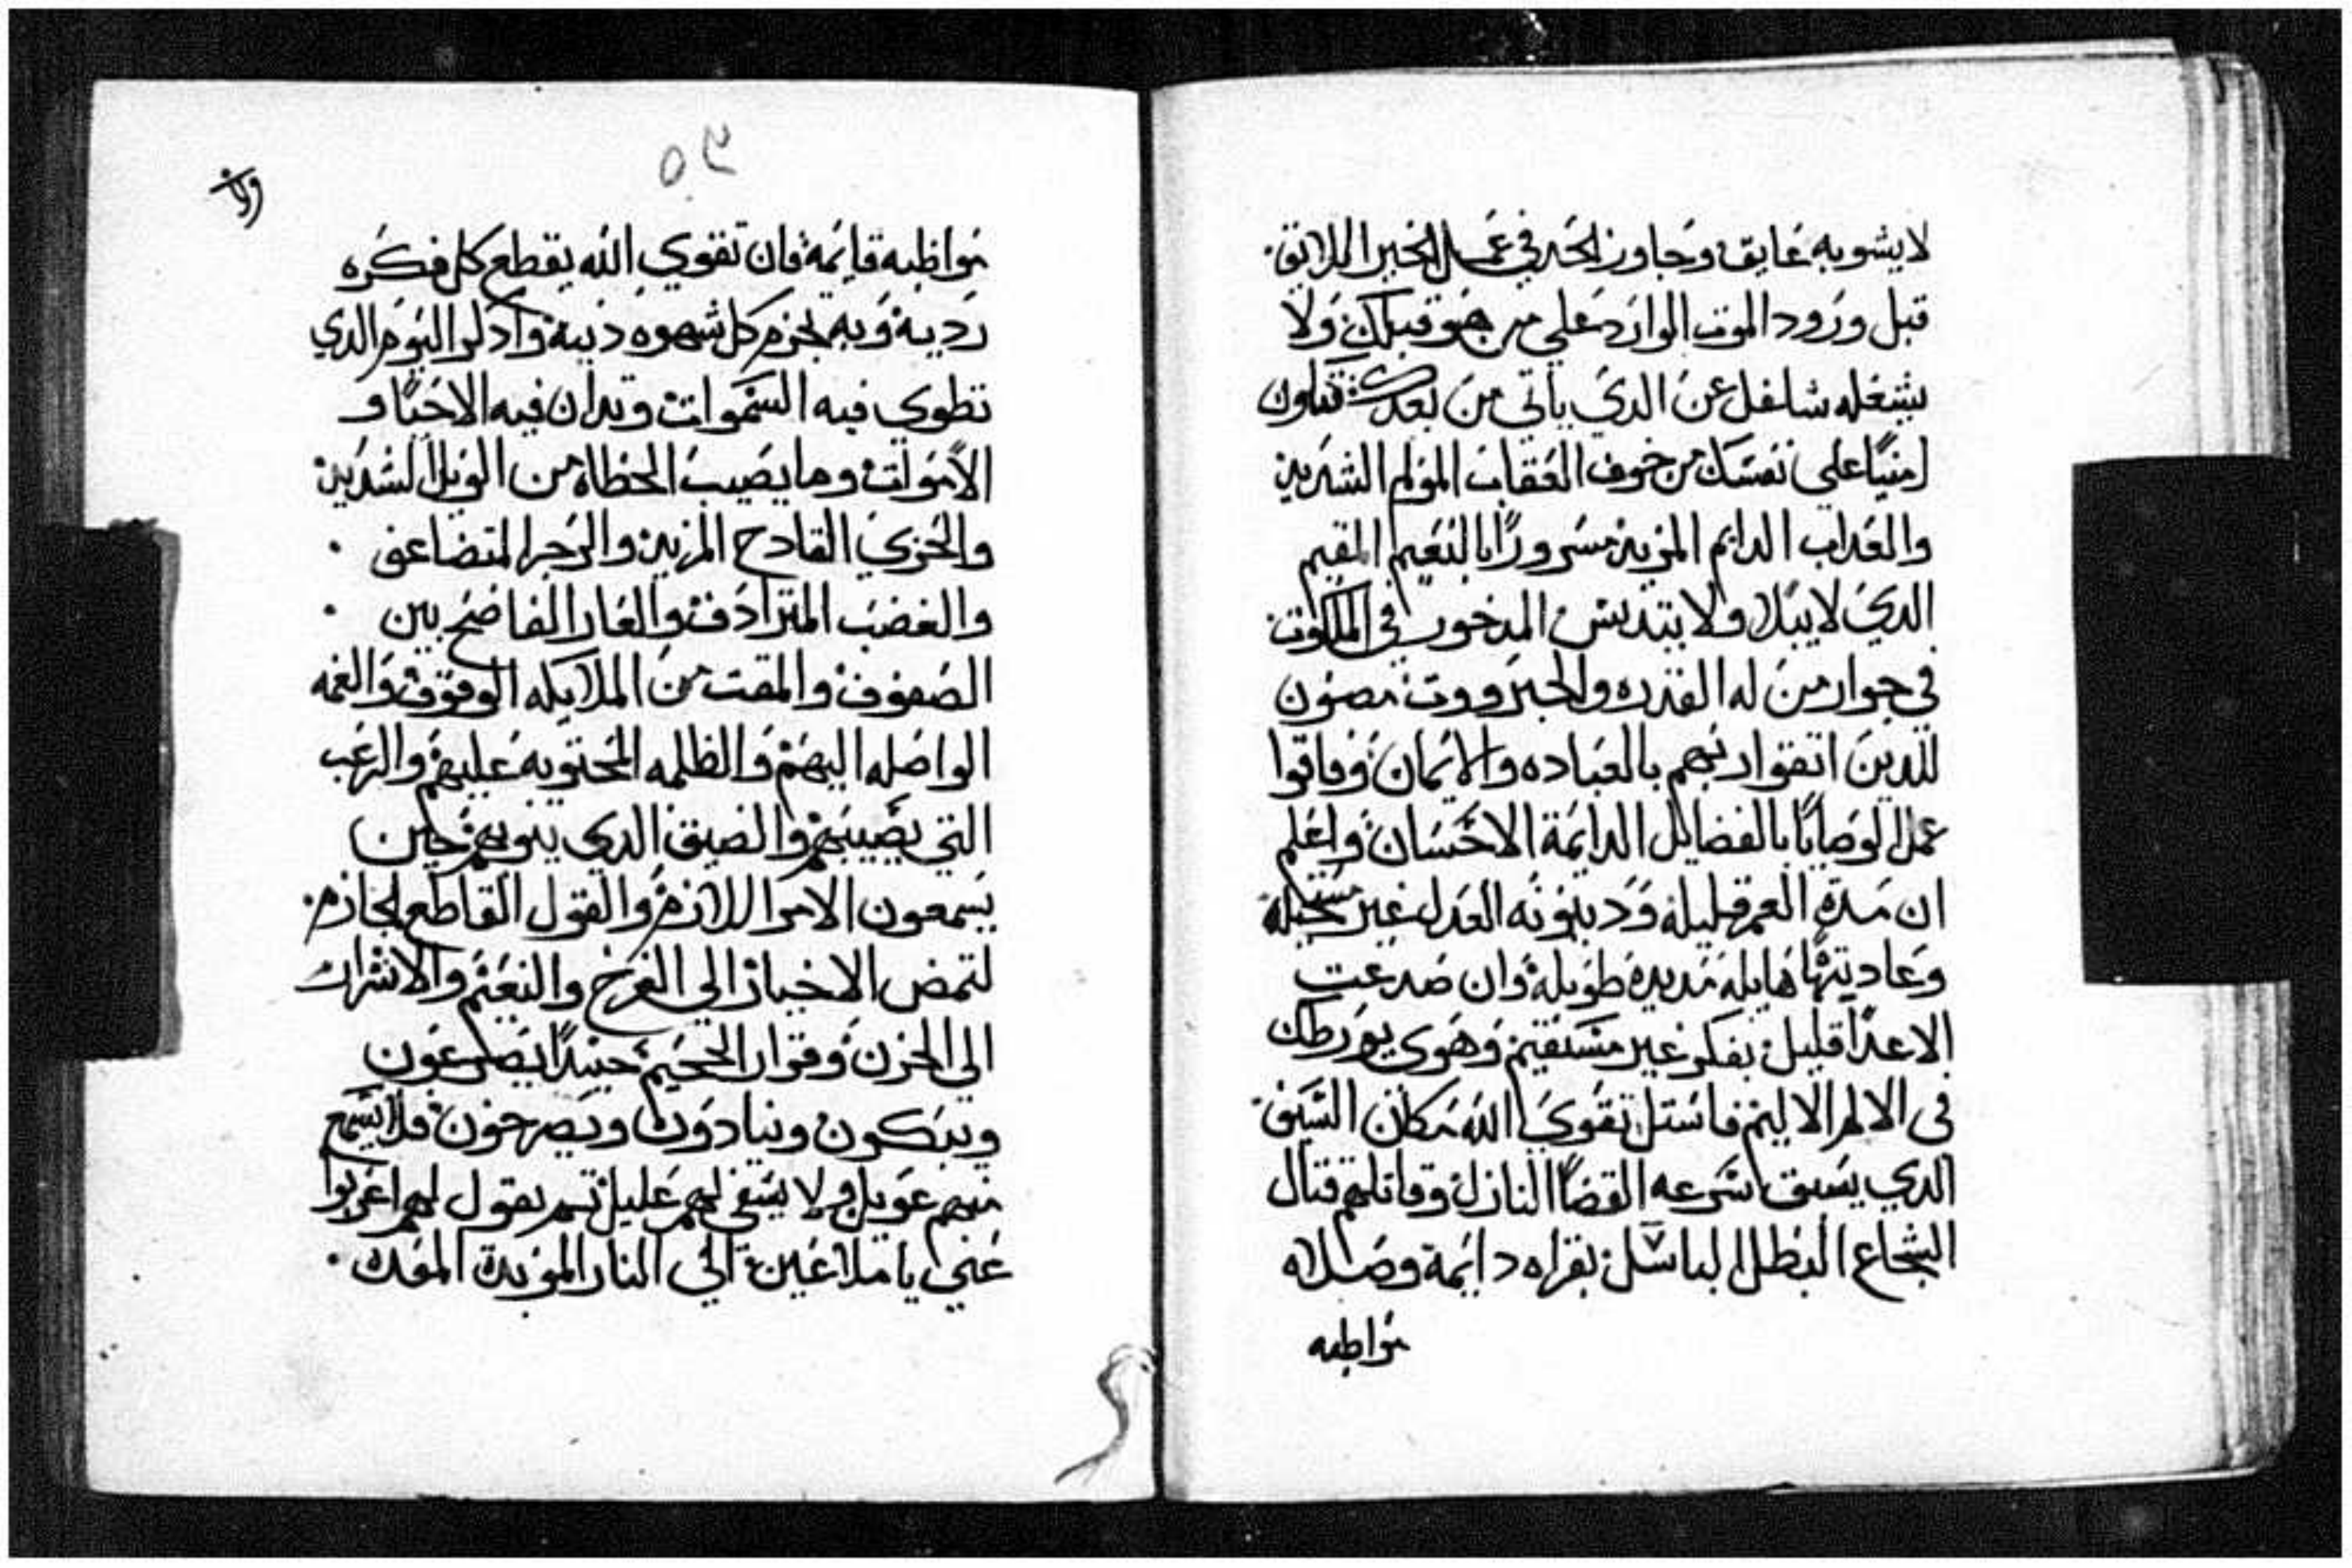 لا يشوبه عايق وجاوز الحد في عمل الخير اللايق
قبل ورود الموت الوارد علي من هو قبلك ولا
يشغله شاغل عن الدي ياتي من بعدك فتكون
امنيًا علي نفسك من خوف العقاب المولم الشديد
والعداب الدايم المزيد مسرورًا بالنعيم المقيم
الدي لا يبلا ولا يتدنس المدخور في الملكوت
في جوار من له القدره والجبروت مصون
للدين اتقوا ربهم بالعباده والايمان وفاقوا
عمل الوصايا بالفضايل الدايمة الاحسان واعلم
ان مدة العمر قليلة ودينونه العدل غير مستحيلة
وعاديتها هايله مديدة طويلة وان صدعت
الاعدا قليل بفكر غير مستقيم وهوي يورطك
في الالم الاليم فاستل تقوي الله مكان السيف
الدي يسبق اسرعه القضا النازل وقاتلهم قتال
الشجاع البطل الباسل بقراه دايمة وصلاه
مواظبه
٥٢
مواظبه قايمة فان تقوي الله يقطع كل فكره
ردية وبه يجزم كل شهوه دنية وادكر اليوم الدي
تطوي فيه السموات وتدان فيه الاحيا و
الاموات وما يصيب الخطاه من الويل الشديد
والخزي القادح المزيد والزجر المتضاعف
والغضب المترادف والعار الفاضح بين
الصفوف والمقت من الملايكه الوقوف والغمه
الواصله اليهم والظلمه المحتويه عليهم والرعب
التي يصيبهم والضيق الدي ينوبهم حين
يسمعون الامر اللازم والقول القاطع الجازم
لتمض الاخيار الي الفرح والنعيم والاشرار
الي الحزن وقرار الجحيم حينيدًا يضرعون
ويبكون وينادون ويصرخون فلا يسمع
منهم عويل ولا يشفي لهم غليل تم يقول لهم اغربوا
عني يا ملاعين الي النار الموبدة المعده